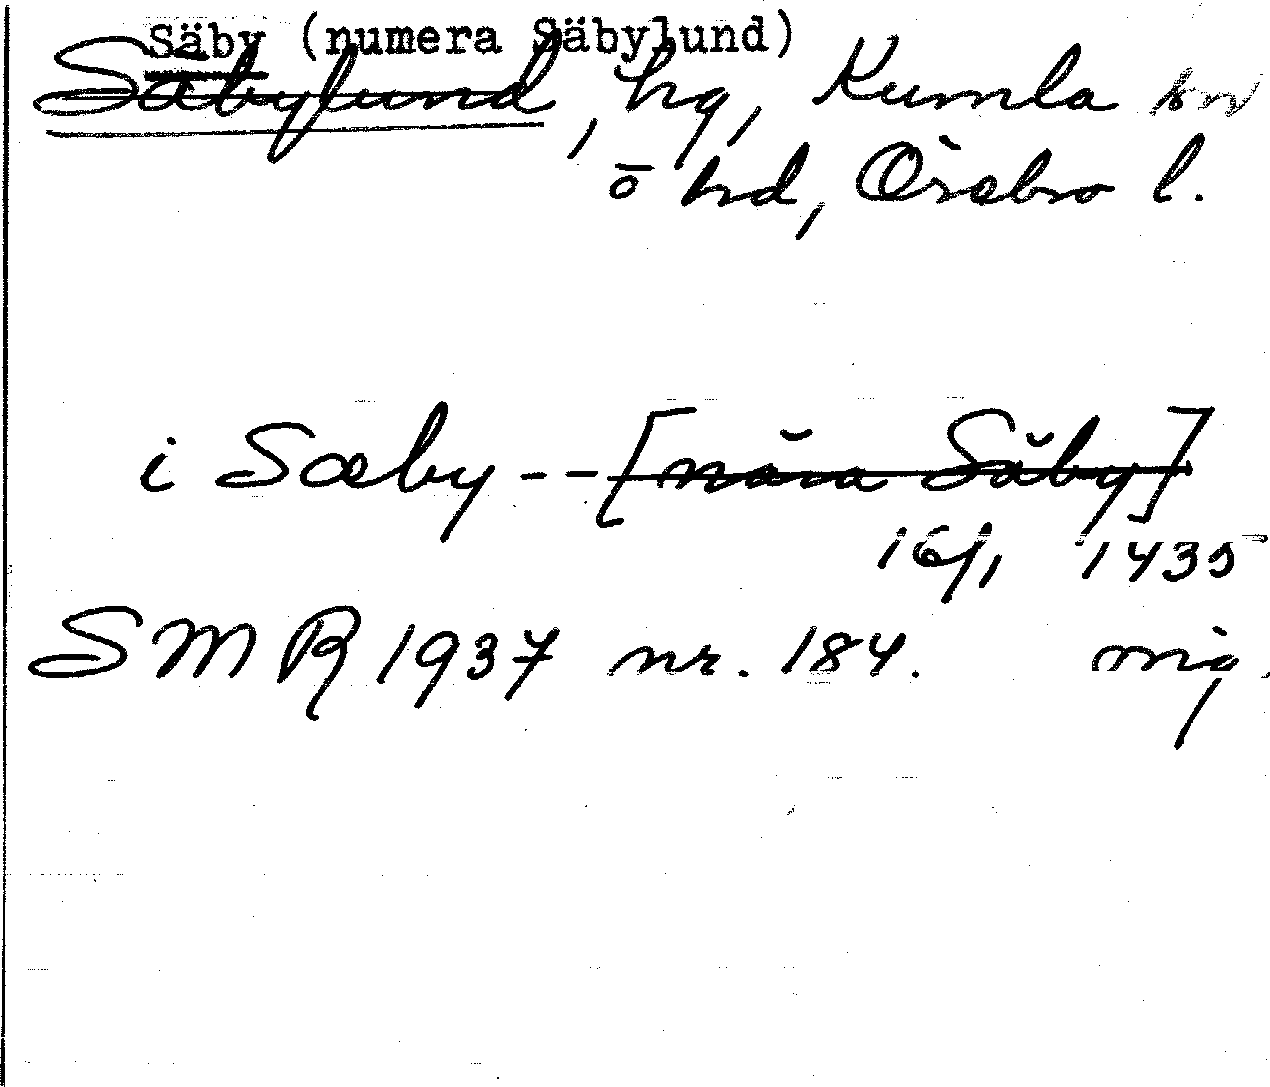 Säby (numera Säbylund)
Säbylund, hg, Kumla sn
o hd, Örebro l.
i Sæby -- [nära Säby]
16/1 1435
SMR 1937 nr. 184.